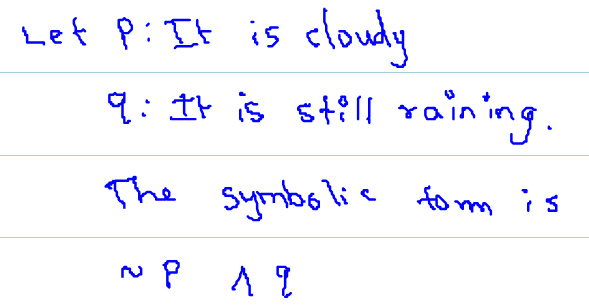 Let P: It is cloudy
q: It is still raining.
The symbolic form is
~ P ∧ q